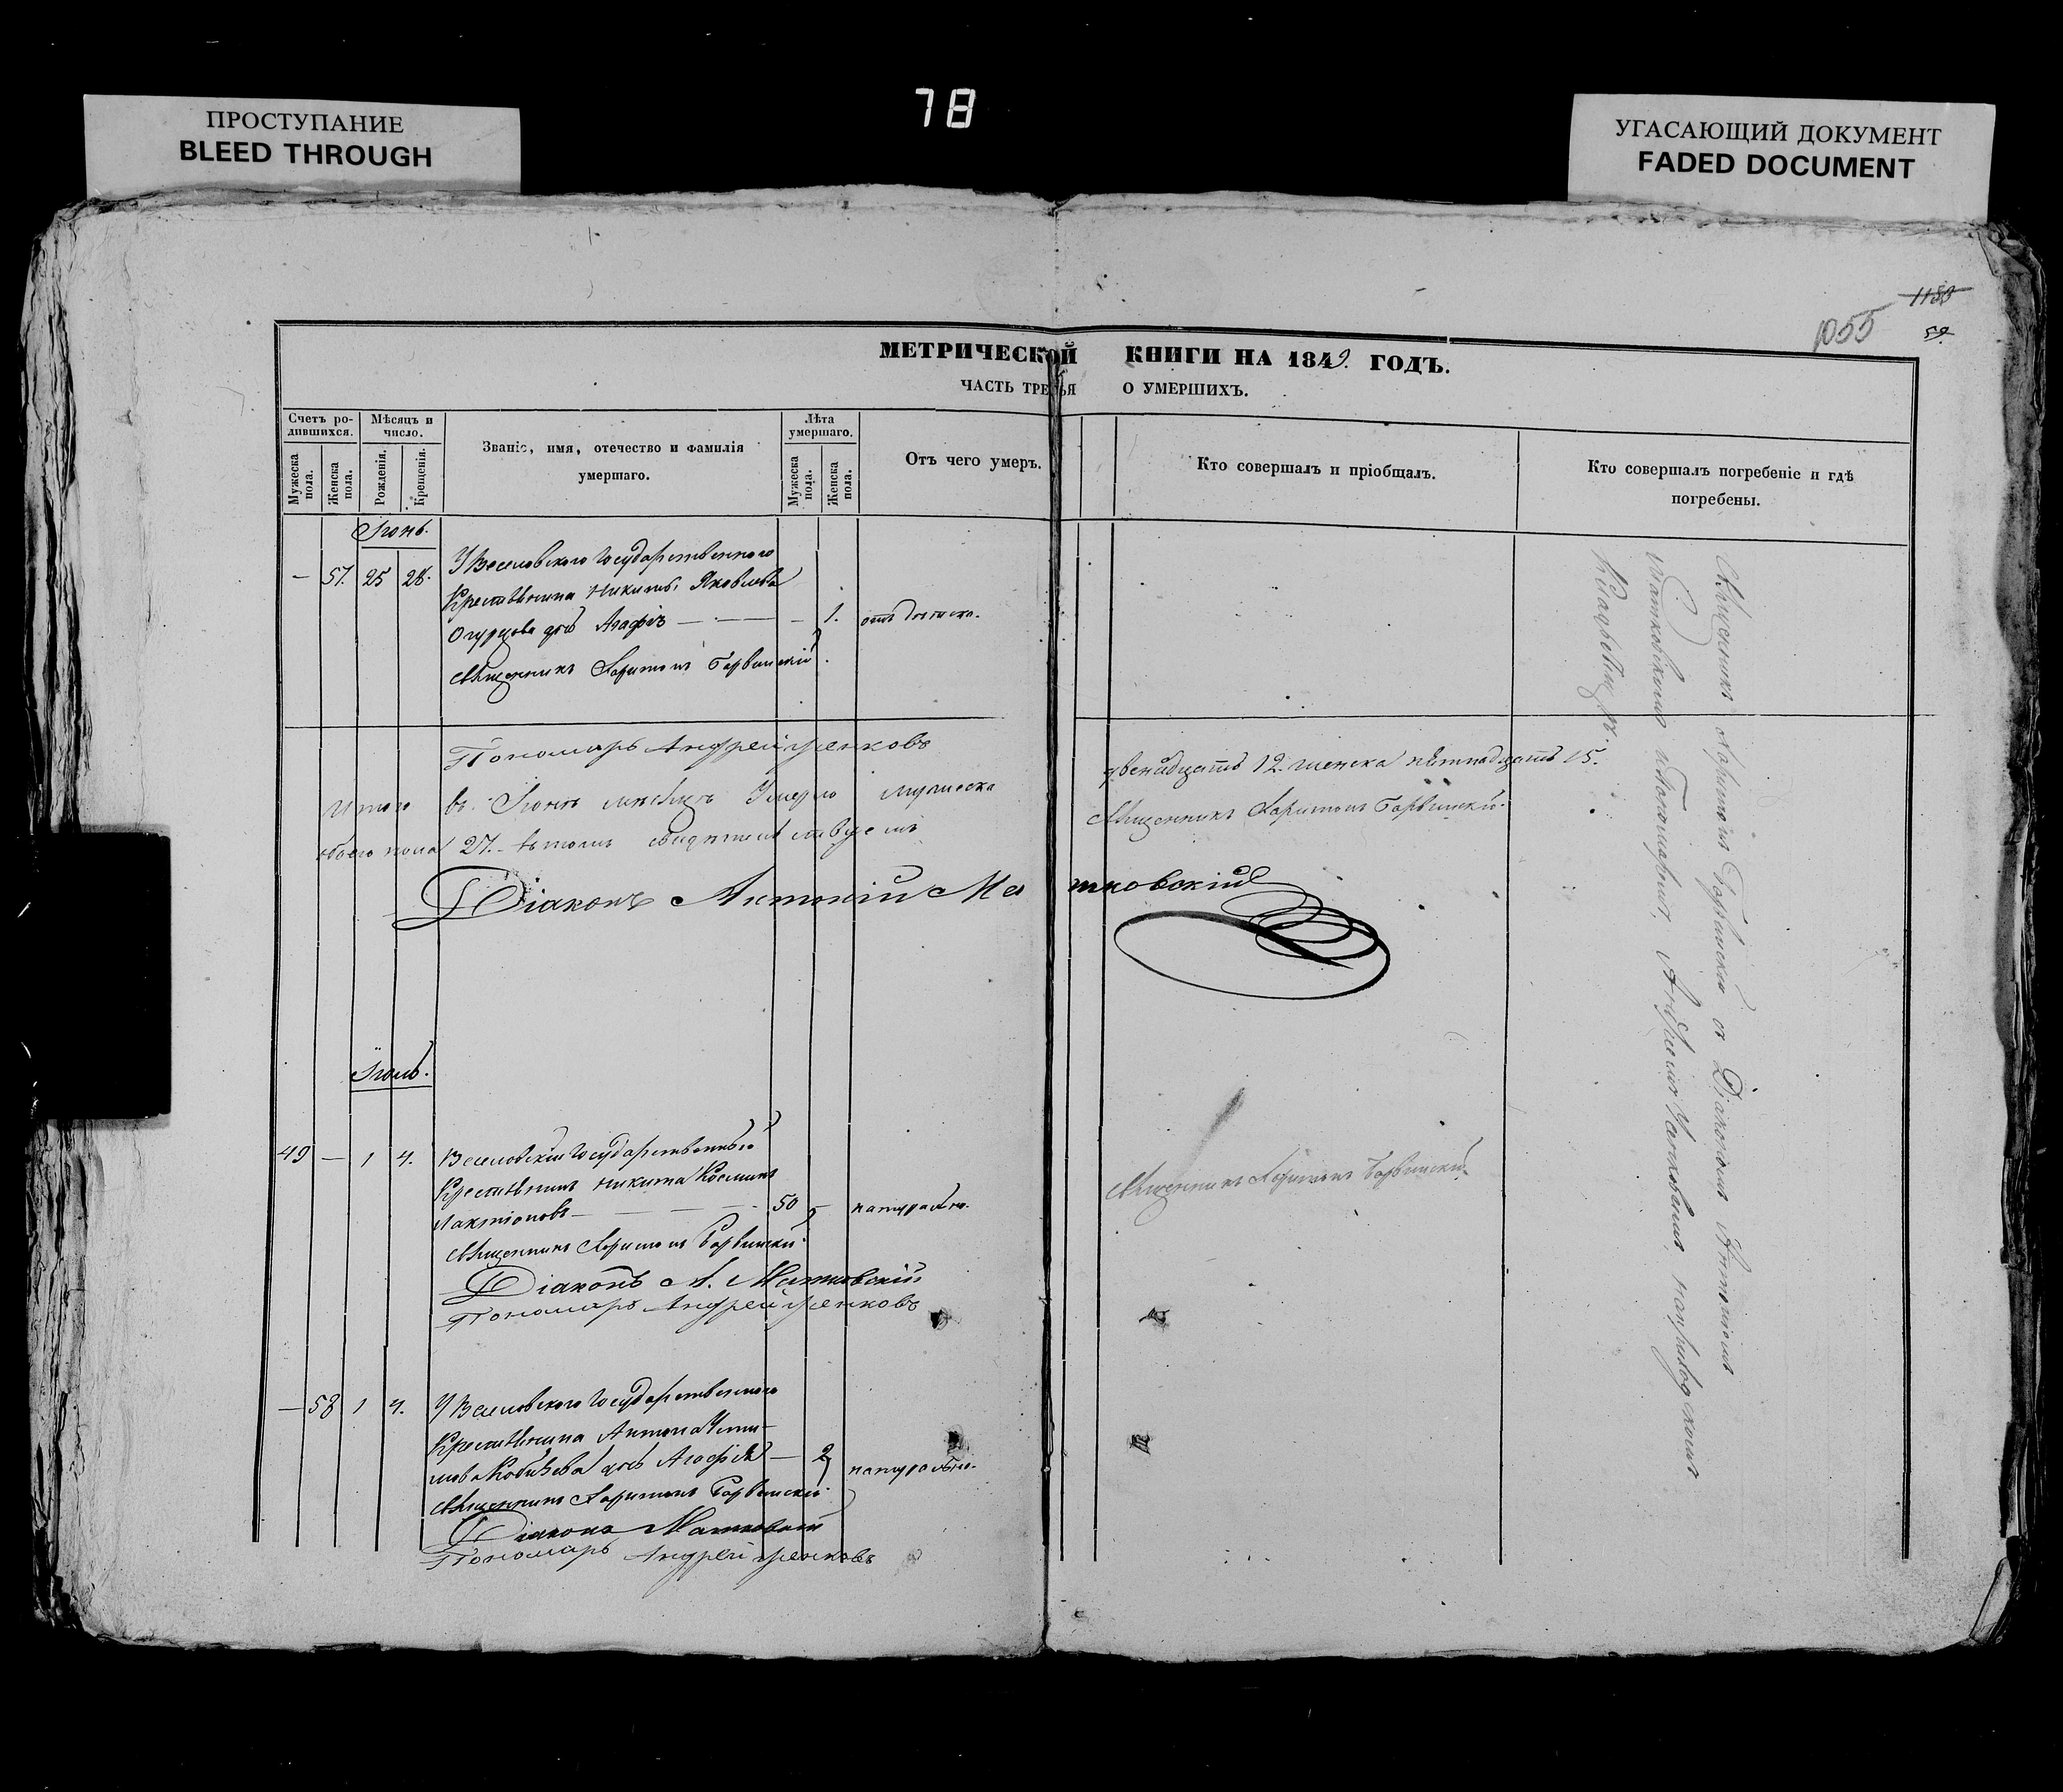 78
ПРОСТУПАНИЕ
BLEED THROUGH
УГАСАЮЩИЙ ДОКУМЕНТ
FADED DOCUMENT
1055
59.
МЕТРИЧЕСКОЙ КНИГИ НА 1849. ГОДЪ.
ЧАСТЬ ТРЕТЬЯ О УМЕРШИХЪ.
Счетъ родившихся.
Мужеска пола.
Женска пола.
Мѣсяцъ и число.
Рожденія.
Крещенія.
Званіе, имя, отечество и фамилія умершаго.
Лѣта умершаго.
Мужеска пола.
Женска пола.
Отъ чего умеръ.
Кто совершалъ и пріобщалъ.
Кто совершалъ погребеніе и гдѣ погребены.
Іюнь.
— 57. 25 28. У Веселовского Государственного
Крестьянина Никиты Яковлева
Огурцова дочь Агафія — — 1.
Священникъ Харитонъ Барвинскій
Пономарь Андрей
Итого въ Іюнѣ мѣсяцѣ Умерло мужеска двенадцать 12. женска пятнадцать 15.
обоего пола 27. въ томъ свидѣтельствуемъ Священникъ Харитонъ Барвинскій.
Діаконъ Антоній Матковскій
Іюль.
49 — 1 4. Веселовскій Государственный
Крестьянинъ Никита Косминъ
Лактіоновъ — — — 50 — натурально.
Священникъ Харитонъ Барвинскій
Священникъ Харитонъ Барвинскій
Діаконъ А. Матковскій
Пономарь Андрей
— 58 1 4. У Веселовского Государственного
Крестьянина Антона
дочь Агафія — 2 натурально.
Священникъ Харитонъ Барвинскій
Діаконъ Матковскій
Пономарь Андрей
Священникъ Харитонъ Барвинскій съ Діакономъ Антоніемъ
Матковскимъ и Пономаремъ Андреемъ